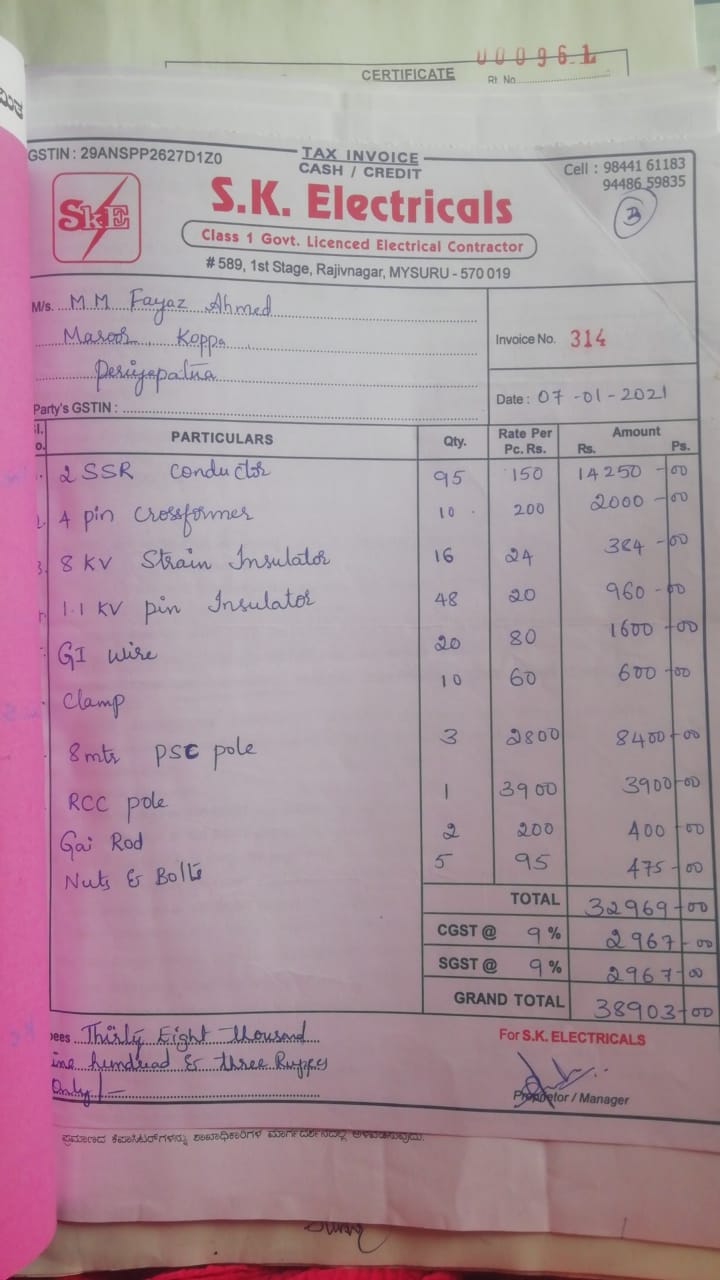 000961
CERTIFICATE
Rt. No.
GSTIN : 29ANSPP2627D1Z0
TAX INVOICE
CASH / CREDIT
Cell : 98441 61183
94486 59835
SKE
S.K. Electricals
3
Class 1 Govt. Licenced Electrical Contractor
# 589, 1st Stage, Rajivnagar, MYSURU - 570 019
M/s. M M Fayaz Ahmed
Koppa
Periyapatna
Invoice No. 314
Date : 07-01-2021
Party's GSTIN :
PARTICULARS Qty. Rate Per Pc. Rs. Amount Rs. Ps.
2 SSR conductor 95 150 14250-00
4 pin Crossformer 10 200 2000-00
8 KV Strain Insulator 16 24 384-00
1.1 KV pin Insulator 48 20 960-00
GI wire 20 80 1600-00
Clamp 10 60 600-00
8mtr PSC pole 3 2800 8400-00
RCC pole 1 3900 3900-00
Gai Rod 2 200 400-00
Nuts & Bolts 5 95 475-00
TOTAL 32969-00
CGST @ 9% 2967-00
SGST @ 9% 2967-00
GRAND TOTAL 38903-00
ees Thirty Eight thousand
ine hundread & three Rupees
only/-
For S.K. ELECTRICALS
Proprietor / Manager
ಪ್ರಮಾಣದ ಕೆಪಾಸಿಟರ್‌ಗಳನ್ನು ಶಾಖಾಧಿಕಾರಿಗಳ ಮಾರ್ಗದರ್ಶನದಲ್ಲಿ ಅಳವಡಿಸುವುದು.